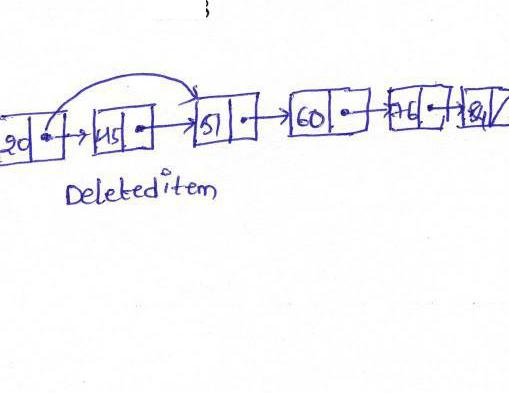 ;
20 45 51 60 76 84
Deleted item